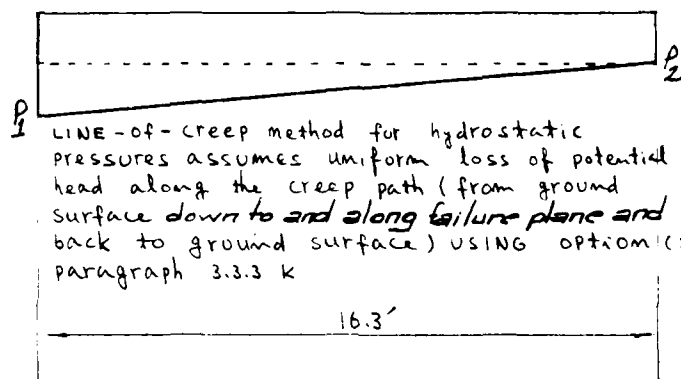 P1
P2
LINE-of-creep method for hydrostatic
pressures assumes uniform loss of potential
head along the creep path (from ground
surface down to and along failure plane and
back to ground surface) USING option (
paragraph 3.3.3 k
16.3'